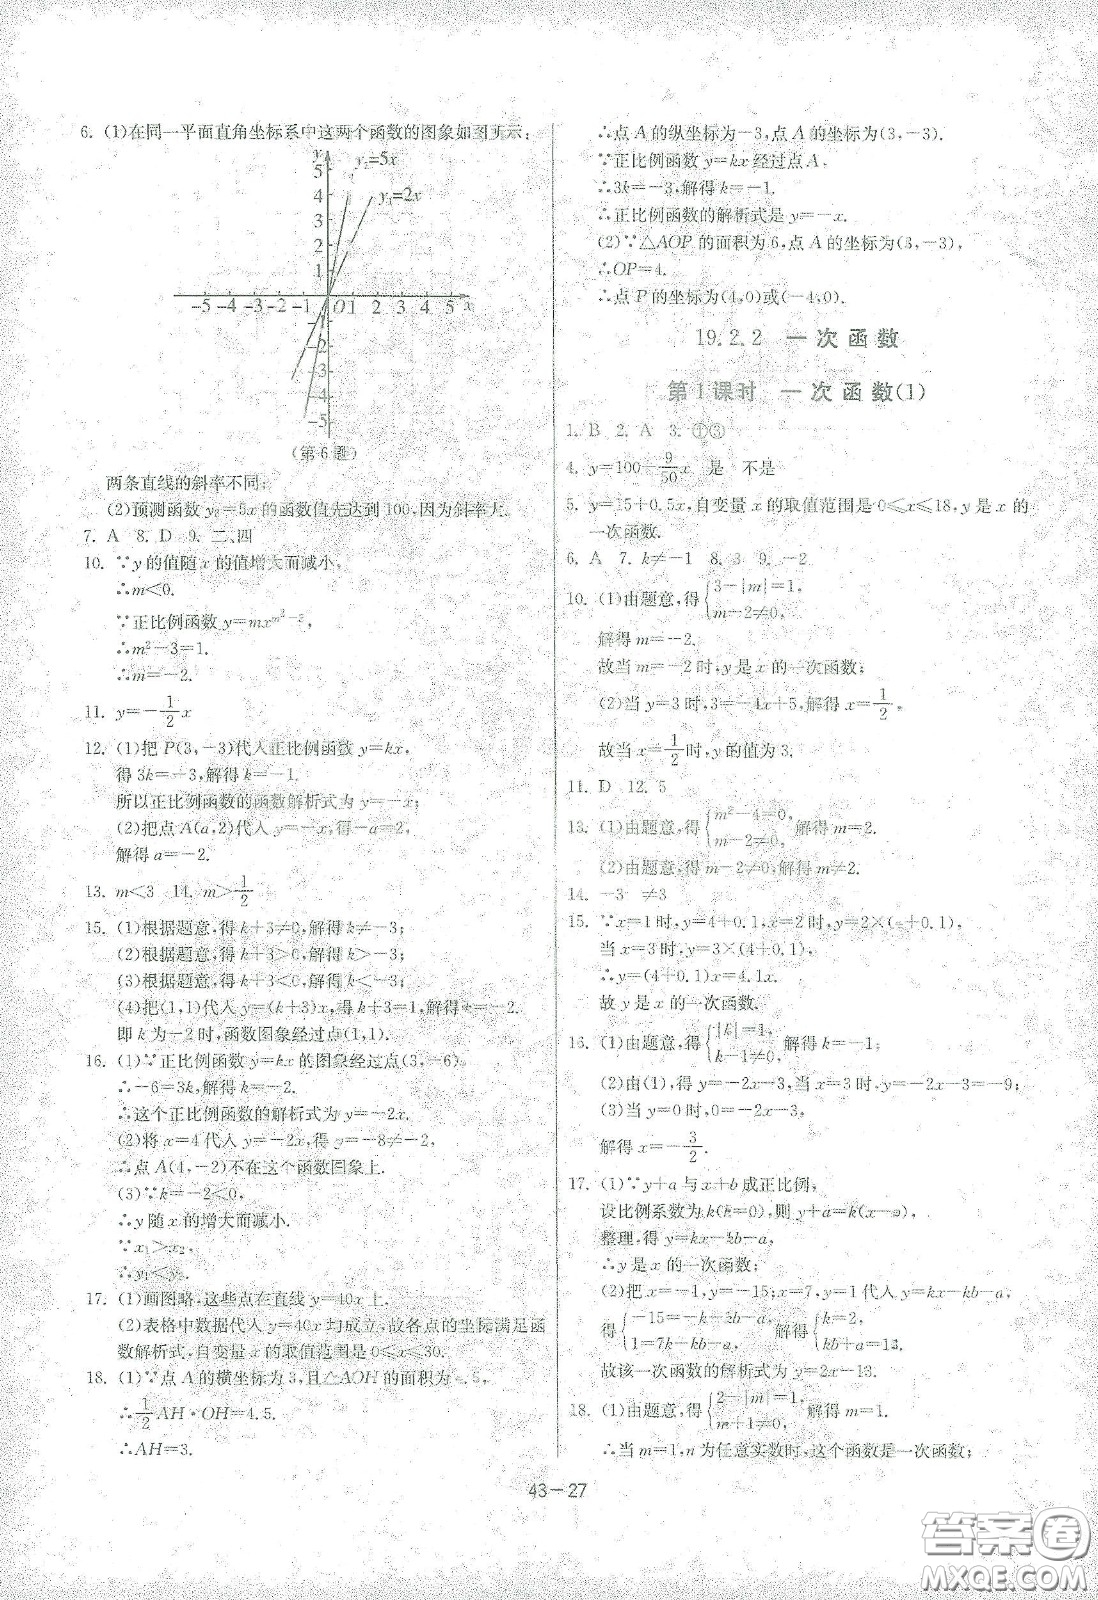 6. (1)在同一平面直角坐标系中这两个函数的图象如图所示:
y
y₂=5x
5
4
y₁=2x
3
2
1
-5 -4 -3 -2 -1 O 1 2 3 4 5 x
-1
-2
-3
-4
-5
(第6题)
两条直线的斜率不同;
(2)预测函数 y₂=5x的函数值先达到100,因为斜率大.
7. A 8. D 9. 二、四
10. ∵y的值随x的值增大而减小,
∴m<0.
∵正比例函数 y=mx^{m²-3},
∴m²-3=1.
∴m=-2.
11. y=-1/2 x
12. (1)把 P(3,-3)代入正比例函数 y=kx,
得 3k=-3,解得 k=-1.
所以正比例函数的函数解析式为 y=-x;
(2)把点A(a,2)代入 y=-x,得-a=2,
解得 a=-2.
13. m<3 14. m>1/2
15. (1)根据题意,得 k+3≠0,解得 k≠-3;
(2)根据题意,得 k+3>0,解得 k>-3;
(3)根据题意,得 k+3<0,解得 k<-3;
(4)把(1,1)代入 y=(k+3)x,得 k+3=1,解得 k=-2.
即 k为-2时,函数图象经过点(1,1).
16. (1)∵正比例函数 y=kx的图象经过点(3,-6),
∴-6=3k,解得 k=-2.
∴这个正比例函数的解析式为 y=-2x.
(2)将 x=4代入 y=-2x,得 y=-8≠-2,
∴点 A(4,-2)不在这个函数图象上.
(3)∵k=-2<0,
∴y随x的增大而减小.
∵x₁>x₂,
∴y₁<y₂.
17. (1)画图略,这些点在直线 y=40x上.
(2)表格中数据代入 y=40x均成立,故各点的坐标满足函
数解析式,自变量x的取值范围是0≤x≤30.
18. (1)∵点 A的横坐标为3,且△AOH的面积为4.5,
∴1/2 AH·OH=4.5.
∴AH=3.
∴点 A的纵坐标为-3,点 A的坐标为(3,-3).
∵正比例函数 y=kx经过点A,
∴3k=-3,解得 k=-1.
∴正比例函数的解析式是 y=-x.
(2)∵△AOP的面积为6,点 A的坐标为(3,-3),
∴OP=4.
∴点 P的坐标为(4,0)或(-4,0).
19.2.2 一次函数
第1课时 一次函数(1)
1. B 2. A 3. ①③
4. y=100-9/50 x 是 不是
5. y=15+0.5x,自变量 x的取值范围是0≤x≤18,y是x的
一次函数.
6. A 7. k≠-1 8. 3 9. -2
10. (1)由题意,得{3-|m|=1, m-2≠0,
解得 m=-2.
故当 m=-2时,y是 x的一次函数;
(2)当 y=3时,3=-4x+5,解得 x=1/2,
故当 x=1/2时,y的值为3.
11. D 12. 5
13. (1)由题意,得{m²-4=0, m-2≠0, 解得 m=2.
(2)由题意,得 m-2≠0,解得 m≠2.
14. -3 ≠3
15. ∵x=1时,y=4+0.1,x=2时,y=2×(4+0.1),
当 x=3时,y=3×(4+0.1),
∴y=(4+0.1)x=4.1x.
故 y是x的一次函数.
16. (1)由题意,得{|k|=1, k-1≠0, 解得 k=-1.
(2)由(1),得 y=-2x-3,当 x=3时,y=-2×3-3=-9;
(3)当 y=0时,0=-2x-3,
解得 x=-3/2.
17. (1)∵y+a与x+b成正比例,
设比例系数为k(k≠0),则 y+a=k(x+b),
整理,得 y=kx-kb-a,
∴y是 x的一次函数;
(2)把 x=-1,y=-15;x=7,y=1代入 y=kx-kb-a,
得{-15=-k-kb-a, 1=7k-kb-a, 解得{k=2, kb+a=13.
故该一次函数的解析式为 y=2x-13.
18. (1)由题意,得{2-|m|=1, m+1≠0, 解得 m=1.
∴当 m=1,n为任意实数时,这个函数是一次函数;
43-27
答案圈
MXQE.COM